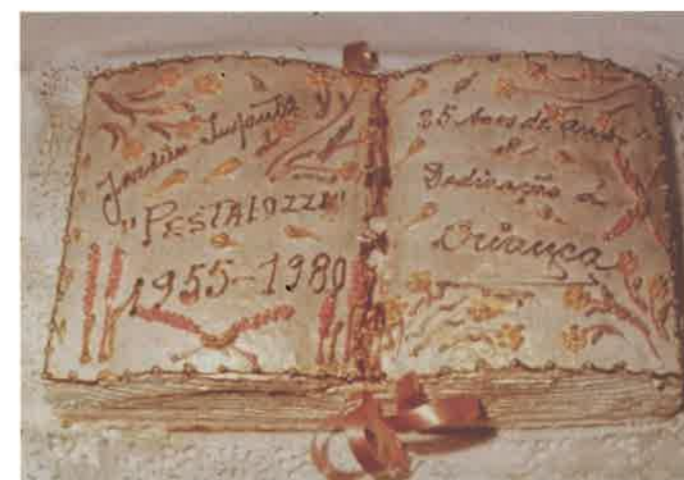 Jardim Infantil
"PESTALOZZI"
1955-1980
25 Anos de amor
e
Dedicação à
Criança